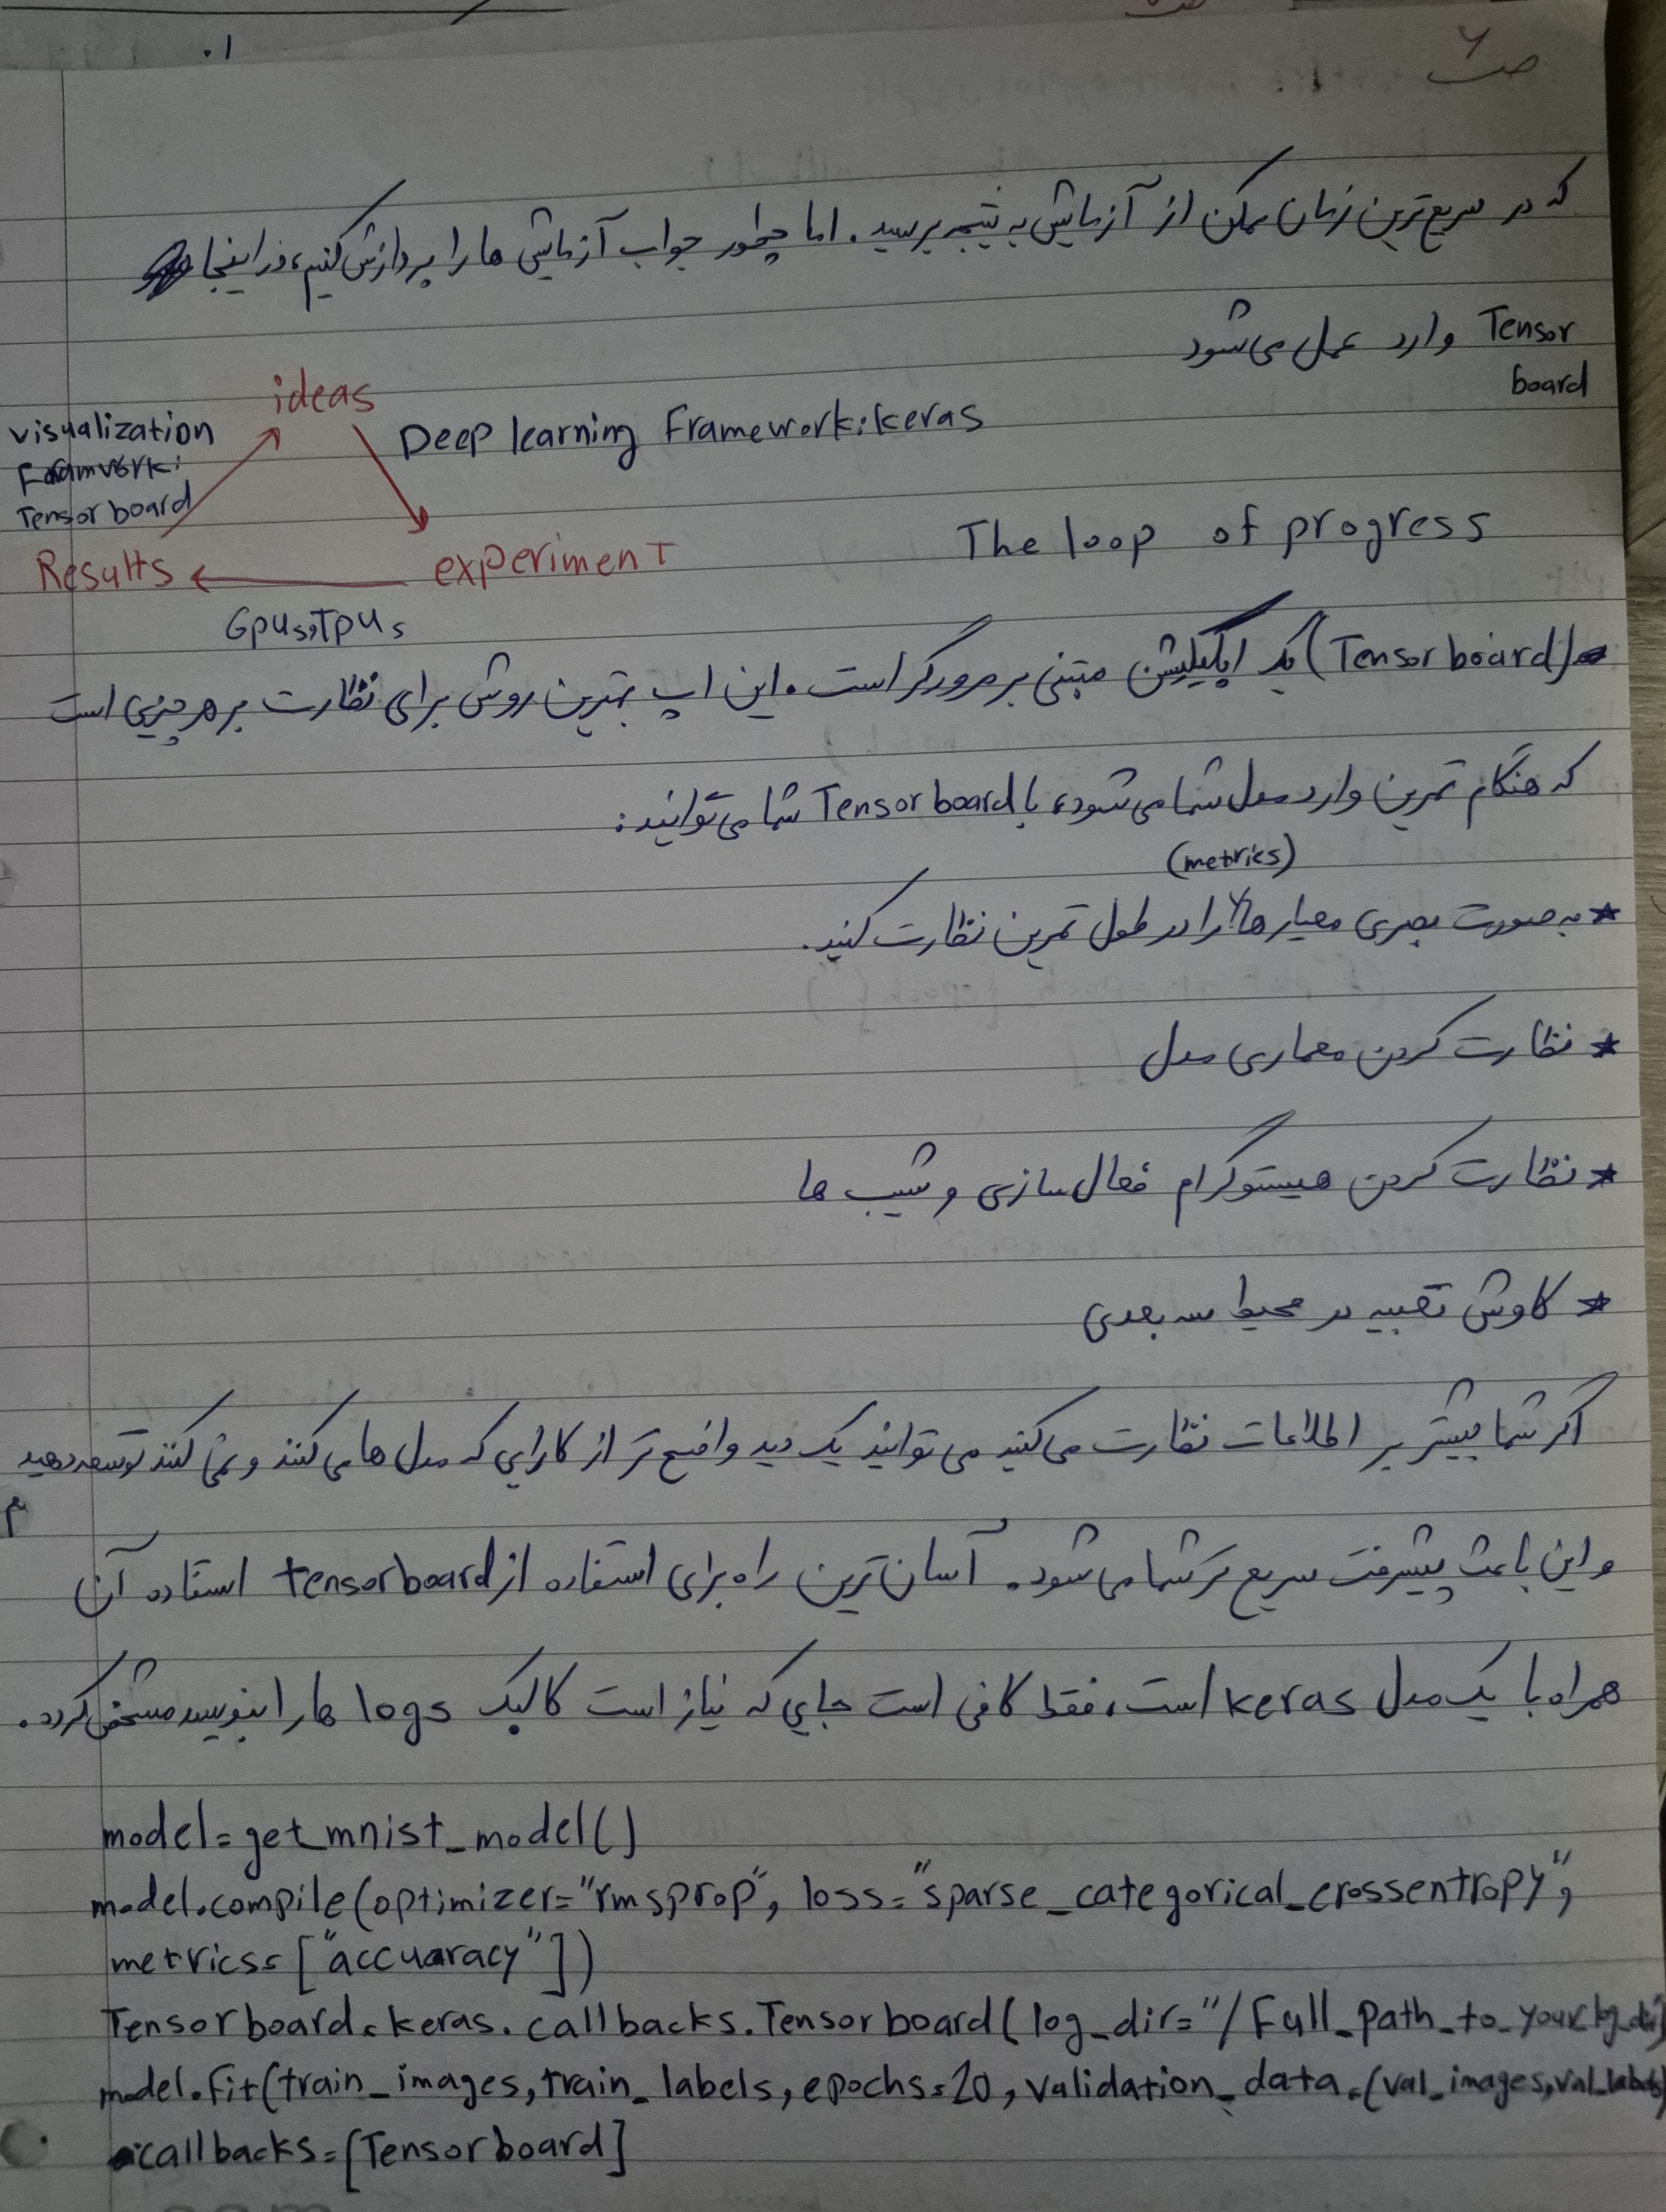 ص ۶
که در سریع‌ترین زمان ممکن از آزمایش به نتیجه برسید. اما چطور جواب آزمایش ها را پردازش کنیم، در اینجا
Tensor board وارد عمل می‌شود
ideas
visualization
Framwork:
Tensor board
Deep learning Framework: keras
The loop of progress
Results
experiment
Gpus, Tpus
(Tensorboard) یک اپلیکیشن مبتنی بر مرورگر است. این اپ بهترین روش برای نظارت بر هر چیزی است
که هنگام تمرین وارد مدل شما می‌شود، با Tensorboard شما می‌توانید:
(metrics)
* به صورت بصری معیارها را در طول تمرین نظارت کنید.
* نظارت کردن معماری مدل
* نظارت کردن هیستوگرام فعال سازی و شیب ها
* کاوش تعبیه در محیط سه بعدی
اگر شما بیشتر بر اطلاعات نظارت می‌کنید می‌توانید یک دید واضح تر از کارایی که مدل ها می‌کنند و نمی‌کنند توسعه دهید
و این باعث پیشرفت سریع تر شما می‌شود. آسان ترین راه برای استفاده از tensorboard استفاده آن
همراه با یک مدل keras است، فقط کافی است جایی که نیاز است کالبک logs ها را بنویسید مشخص گردد.
model=get_mnist_model()
model.compile(optimizer="rmsprop", loss="sparse_categorical_crossentropy",
metrics=["accuaracy"])
Tensorboard=keras.callbacks.Tensorboard(log_dir="/Full_path_to_your_log_dir
model.fit(train_images,train_labels,epochs=10,validation_data=(val_images,val_labels)
callbacks=[Tensorboard]